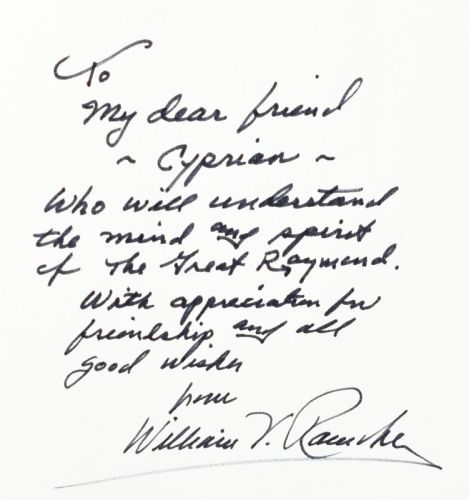 To
My dear friend
~ Cyprian ~
Who will understand
the mind and spirit
of The Great Raymond.
With appreciation for
friendship and all
good wishes
from
William V. Rauscher